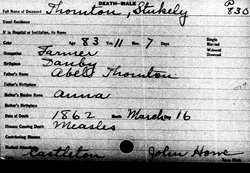 DEATH—MALE
P 830
Full Name of Deceased Thornton, Stukely
Usual Residence
If in Hospital or Institution, its Name
Color Age 83 Yrs. 11 Mos. 7 Days Single Married Widowed Divorced
Occupation Farmer
Birthplace Danby
Father's Name Abel Thornton
Father's Birthplace
Mother's Maiden Name Anna
Mother's Birthplace
Date of Death 1862 Month March 16
Disease Causing Death Measles
Contributing Disease
Medical
Castleton John Howe